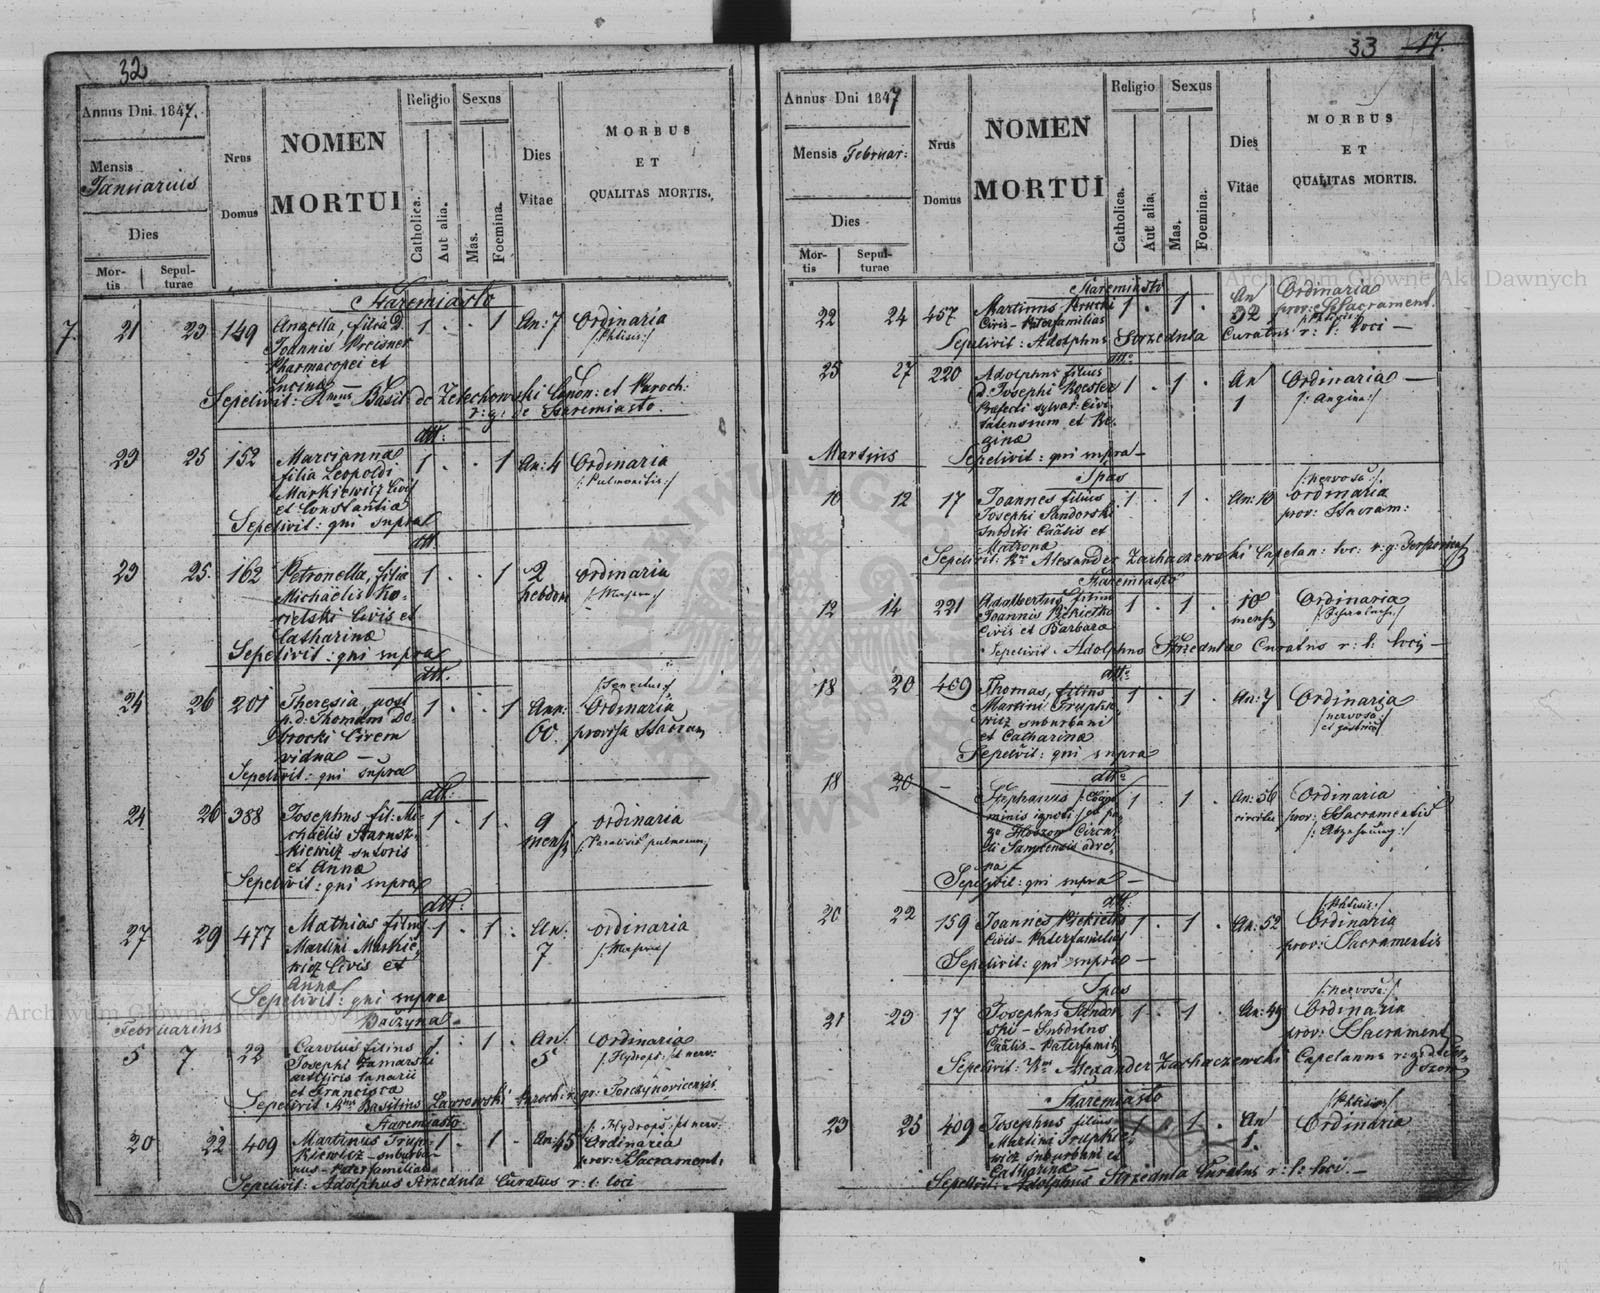 32
Annus Dni. 1847.
Mensis
Januarius
Dies
Mortis
Sepulturae
Nrus
Domus
NOMEN
MORTUI
Religio
Catholica.
Aut alia.
Sexus
Mas.
Foemina.
Dies
Vitae
MORBUS
ET
QUALITAS MORTIS.
Staremiasto
7. 21 23 149 Angella, filia D. 1 . . 1 An: 7 Ordinaria
Joannis Preisner /:Phtisis:/
Pharmacopei et
Lucina —
Sepelivit: Rmus Basil: de Zelechowski Canon: et Paroch:
r: g: de Staremiasto.
dtt:
23 25 152 Marcianna 1 . . 1 An: 4 Ordinaria
filia Leopoldi /:Pulmonitis:/
Markiewicz Civis
et Constantia
Sepelivit: qui supra
dtt:
23 25. 162 Petronella, filia 1 . . 1 2 ordinaria
Michaelis hebdom
Civis et
Catharina
Sepelivit: qui supra
dtt.
24 26 201 Theresia, post 1 . . 1 Ann: /:Senectus:/
p. d. Thomam Do- 60. Ordinaria
brocki Civem provisa Sacram
vidua —
Sepelivit: qui supra
dtt:
24 26 388 Josephus fil: Mi- 1 . 1 . 9 ordinaria
chaelis Starusz- mens /:Paralisis pulmonum:/
kiewicz sutoris
et Anna
Sepelivit: qui supra
dtt:
27 29 477 Mathias filius 1 . 1 . An: ordinaria
Martini 7
Civis et
Anna
Sepelivit: qui supra
Februarius
Baczyna
5 7. 22 Carolus filius 1 . 1 . An: Ordinaria
Josephi Zamarski 5 /:Hydrops: et nerv:
artificis lanarii
et Francisca
Sepelivit Rmus Basilius Lawrowski Paroch: r. gr: Torczynovicensis
Staremiasto
20 22 409 Martinus Trup- 1 . 1 . An: 45 /: Hydrops: et nerv:
kiewicz – suburba- Ordinaria
nus – Paterfamilias prov: SSacrament:
Sepelivit: Adolphus Strzedula Curatus r: l: loci
33 17.
Annus Dni 1847
Mensis Februar:
Dies
Mortis
Sepulturae
Nrus
Domus
NOMEN
MORTUI
Religio
Catholica.
Aut alia.
Sexus
Mas.
Foemina.
Dies
Vitae
MORBUS
ET
QUALITAS MORTIS.
Archiwum Główne Akt Dawnych
Staremiasto
22 24 457 Martinus 1 . 1 . An Ordinaria
Civis – Paterfamilias 32 prov: SSacrament.
/:Phtisis:/
Sepelivit: Adolphus Strzedula Curatus r: l: loci —
dtt:
25 27 220 Adolphus filius 1 . 1 . An Ordinaria —
D. Josephi Koester 1 /: Angina:/
Praefecti sylvar: Civi-
tatensium et Re-
gina
Sepelivit: qui supra —
Martius
Spas
10 12 17 Joannes filius 1 . 1 . An: 10 /:nervosa:/
Josephi Sandorski ordinaria
subditi Caalis et prov: SSacram:
Matrona
Sepelivit: Rs Alexander Zachaczewski Capelan: loc: r: g:
Staremiasto
12 14 221 Adalbertus filius 1 . 1 . 10 Ordinaria
Joannis Piekietko mens
Civis et Barbara
Sepelivit. Adolphus Strzedula Curatus r: l: loci —
dtt:
18 20 409 Thomas, filius 1 . 1 . An: 7 Ordinaria
Martini Trupkie- /nervosa:/
wicz suburbani et gastrica/
et Catharina
Sepelivit: qui supra
dtt:
18 20 — Stephanus /:Cogno- 1 . 1 . An: 56 Ordinaria
minis ignoti:/ ex pa- circiter prov: SSacramentis
go Circu- /:Abzehrung:/
li Samborensis adve-
na —
Sepelivit: qui supra —
dtt:
20 22 159 Joannes Piekietko 1 . 1 . An: 52 /:Phtisis:/
Civis – Paterfamilias Ordinaria
prov: SSacramentis
Sepelivit: qui supra —
Spas
21 23 17 Josephus Sandor- 1 . 1 . An: 49 /:nervosa:/
ski – Subditus Ordinaria
Caalis – Paterfamilias prov: SSacrament
Sepelivit: Rs Alexander Zachaczewski Capelanus
Staremiasto
23 25 409 Josephus filius 1 . 1 . An /:Phtisis:/
Martini Trupkie- 1. Ordinaria
wicz suburbani et
Catharina —
Sepelivit: Adolphus Strzedula Curatus r: l: loci. —
Archiwum Główne Akt Dawnych